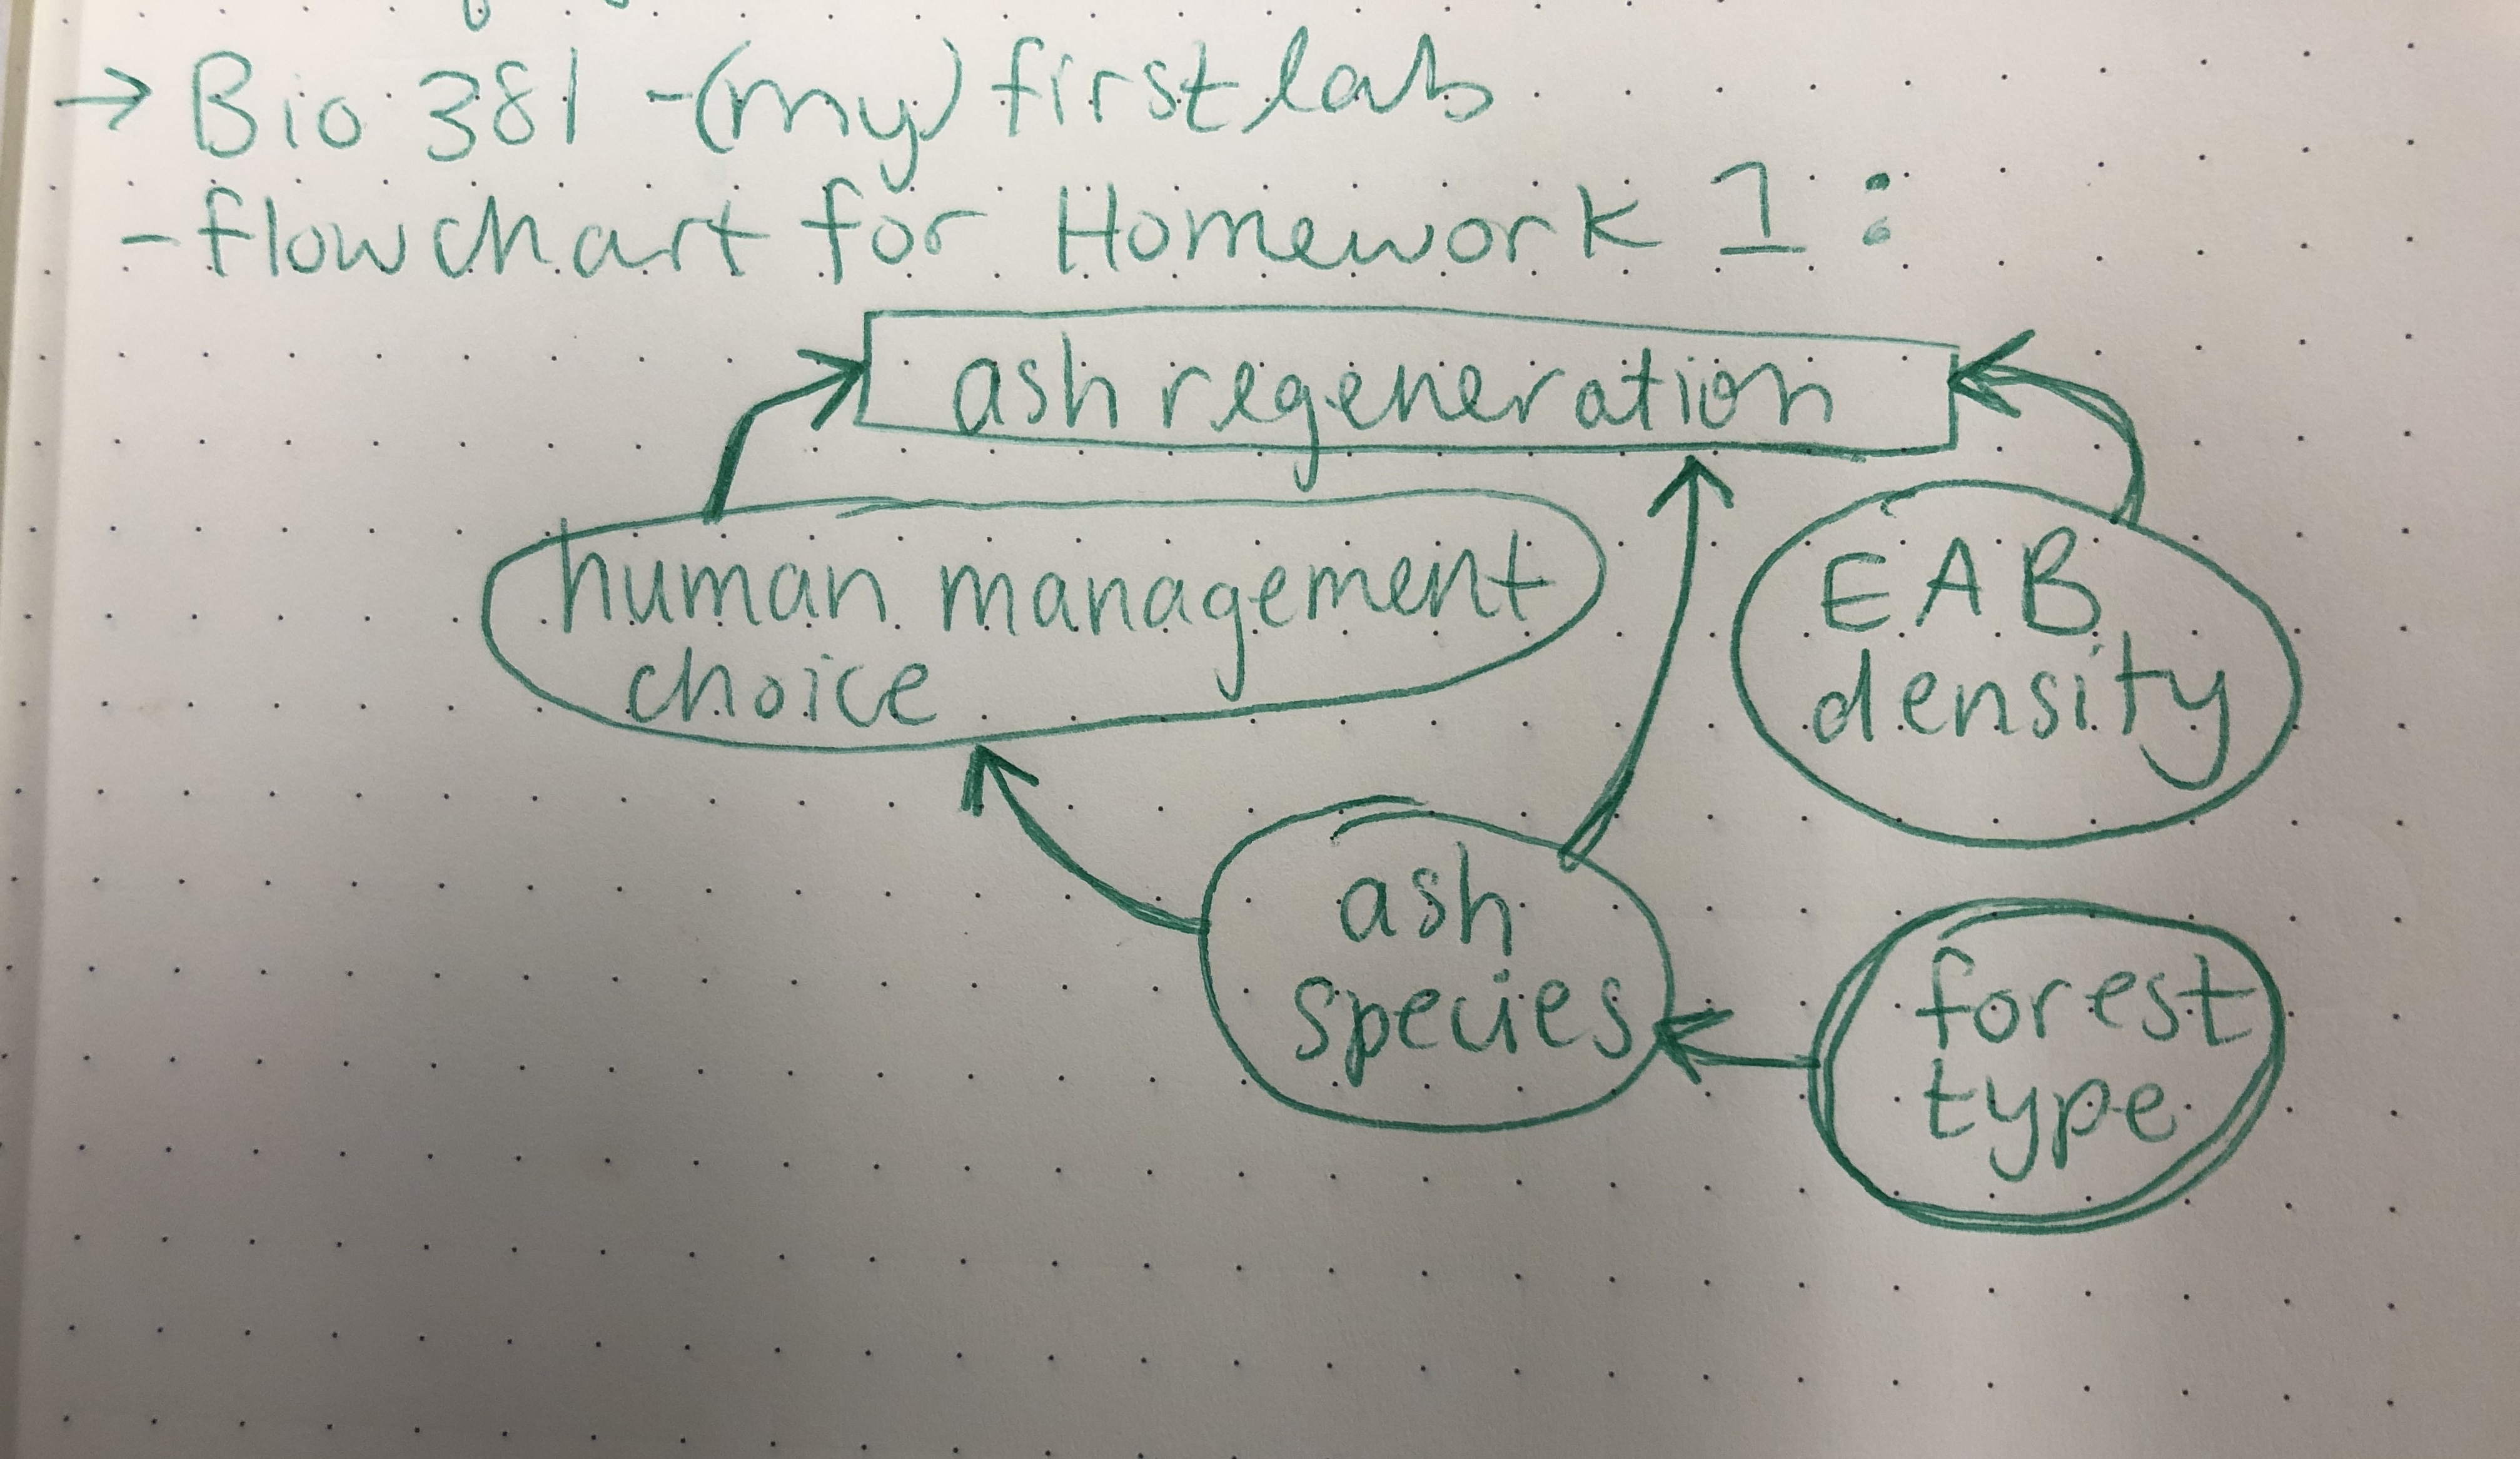 → Bio 381 - (my) first lab
- flowchart for Homework 1:
ash regeneration
human management
choice
EAB
density
ash
species
forest
type